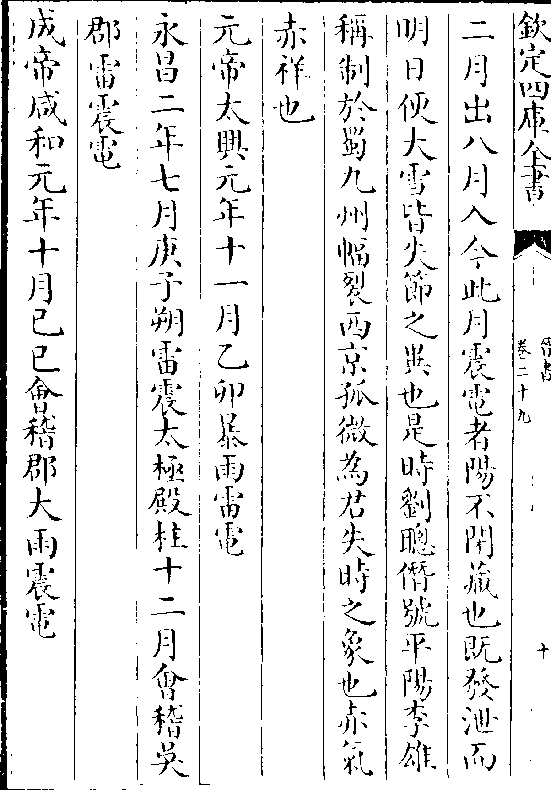 欽定四庫全書
晉書
卷二十九
十
二月出八月入今此月震電者陽不閉藏也既發泄而
明日便大雪皆失節之異也是時劉聰僭號平陽李雄
稱制於蜀九州幅裂西京孤微為君失時之象也赤氣
赤祥也
元帝太興元年十一月乙卯暴雨雷電
永昌二年七月庚子朔雷震太極殿柱十二月會稽吳
郡雷震電
成帝咸和元年十月己巳會稽郡大雨震電